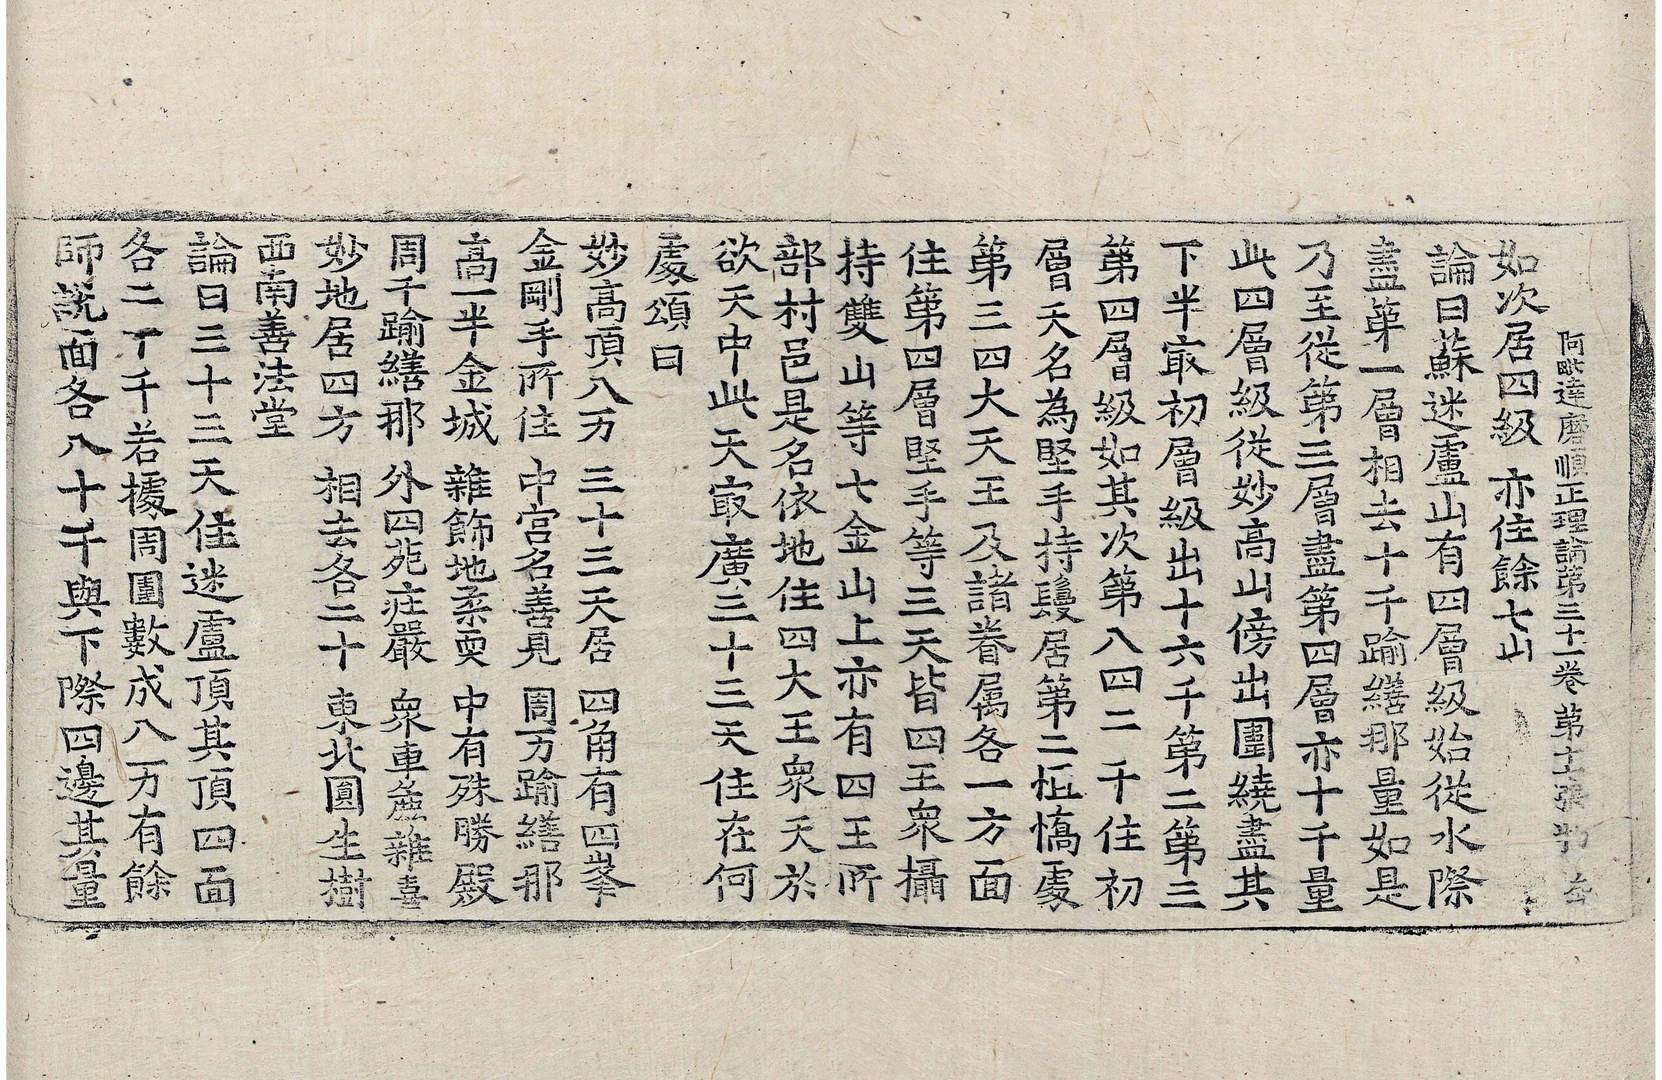 阿毗達磨順正理論第三十一卷 第十二張 物
如次居四級 亦住餘七山
論曰蘇迷盧山有四層級始從水際
盡第一層相去十千踰繕那量如是
乃至從第三層盡第四層亦十千量
此四層級從妙高山傍出圍繞盡其
下半㝡初層級出十六千第二第三
第四層級如其次第八四二千住初
層天名為堅手持鬘居第二恒憍處
第三四大天王及諸眷属各一方面
住第四層堅手等三天皆四王衆攝
持雙山等七金山上亦有四王所
部村邑是名依地住四大王衆天於
欲天中此天㝡廣三十三天住在何
處頌曰
妙高頂八万 三十三天居 四角有四峯
金剛手所住 中宮名善見 周万踰繕那
高一半金城 雜飾地柔耎 中有殊勝殿
周千踰繕那 外四苑莊嚴 衆車麁雜喜
妙地居四方 相去各二十 東北圓生樹
西南善法堂
論曰三十三天住迷盧頂其頂四面
各二十千若據周圍數成八万有餘
師說面各八十千與下際四邊其量